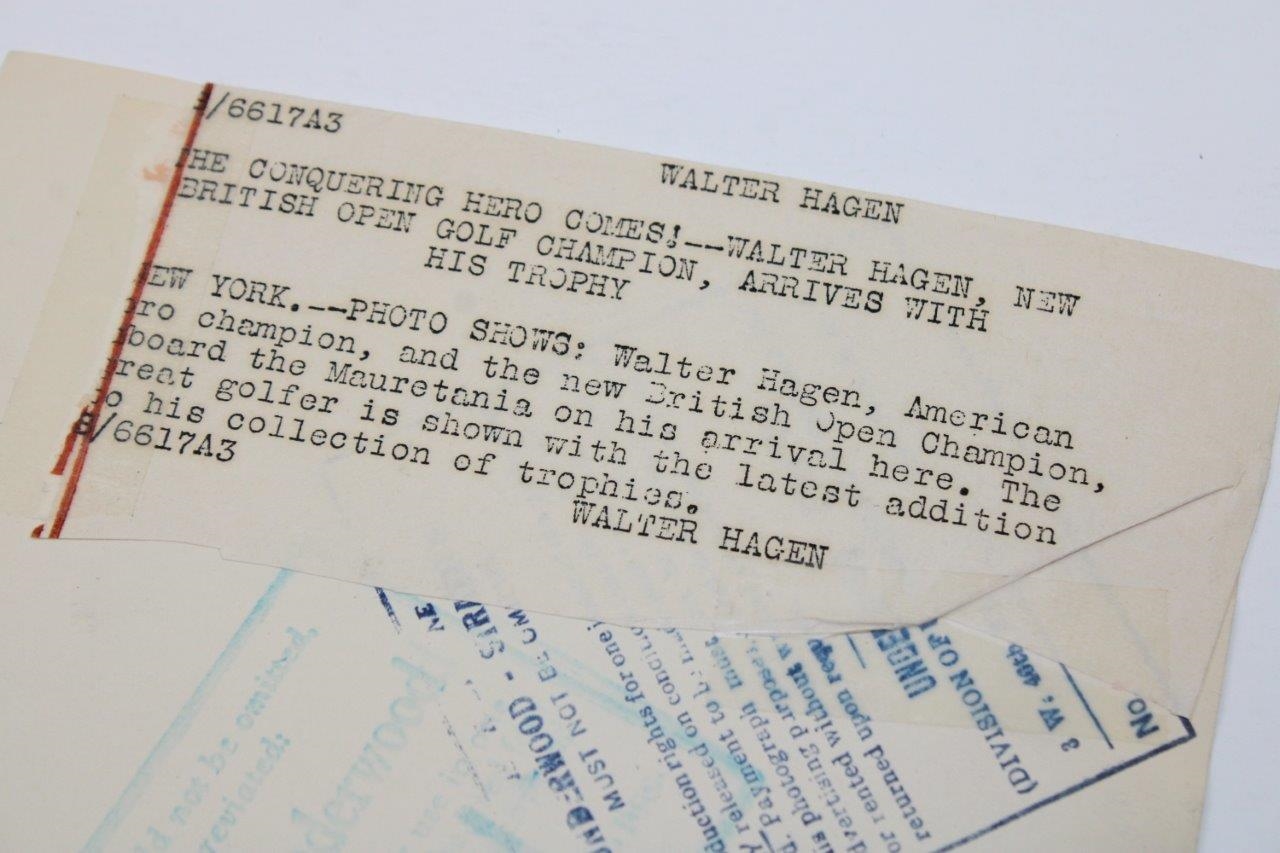 /6617A3
WALTER HAGEN
THE CONQUERING HERO COMES!--WALTER HAGEN, NEW
BRITISH OPEN GOLF CHAMPION, ARRIVES WITH
HIS TROPHY
EW YORK.--PHOTO SHOWS: Walter Hagen, American
ro champion, and the new British Open Champion,
board the Mauretania on his arrival here. The
reat golfer is shown with the latest addition
o his collection of trophies.
/6617A3
WALTER HAGEN
not be omitted,
eviated:
derwood
NE
MUST NOT BE
duction rights for one
released on
d. Payment to be
is photograph must
dvertising purposes,
or rented without
returned upon
UNDE
(DIVISION OF
3 W. 46th
No